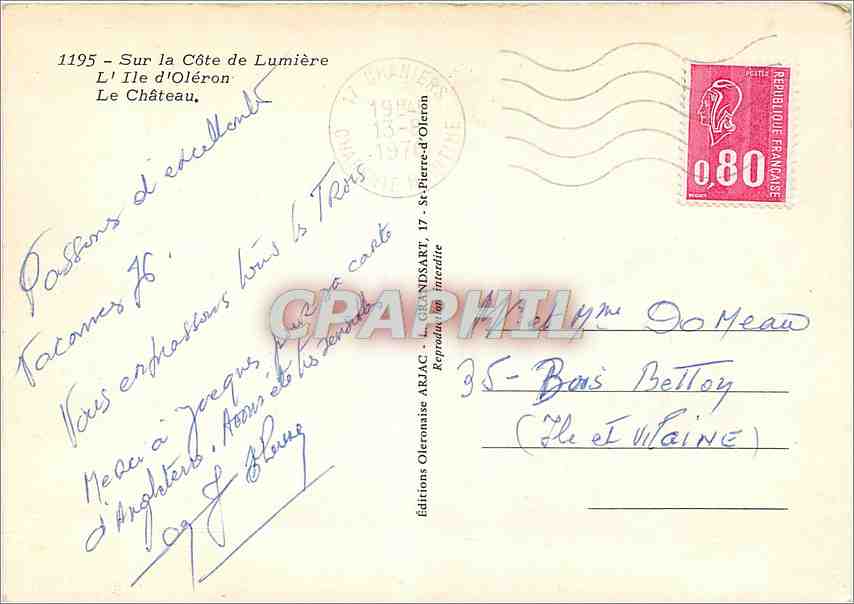 1195 - Sur la Côte de Lumière
L' Ile d'Oléron
Le Château.
17 CHANIERS
13-8
CHARENTE MARITIME
POSTES
REPUBLIQUE FRANÇAISE
0,80
Passons d'excellentes
Vacances
Vous embrassons tous les Trois
Merci à Jacques pour sa carte
d'Angleterre.
CPAPHIL
Éditions Oleronaise ARJAC - L. GRANDSART, 17 - St-Pierre-d'Oleron
Reproduction interdite
M et Mme DoMeau
35 - Bois Betton
(Ile et VILAINE)